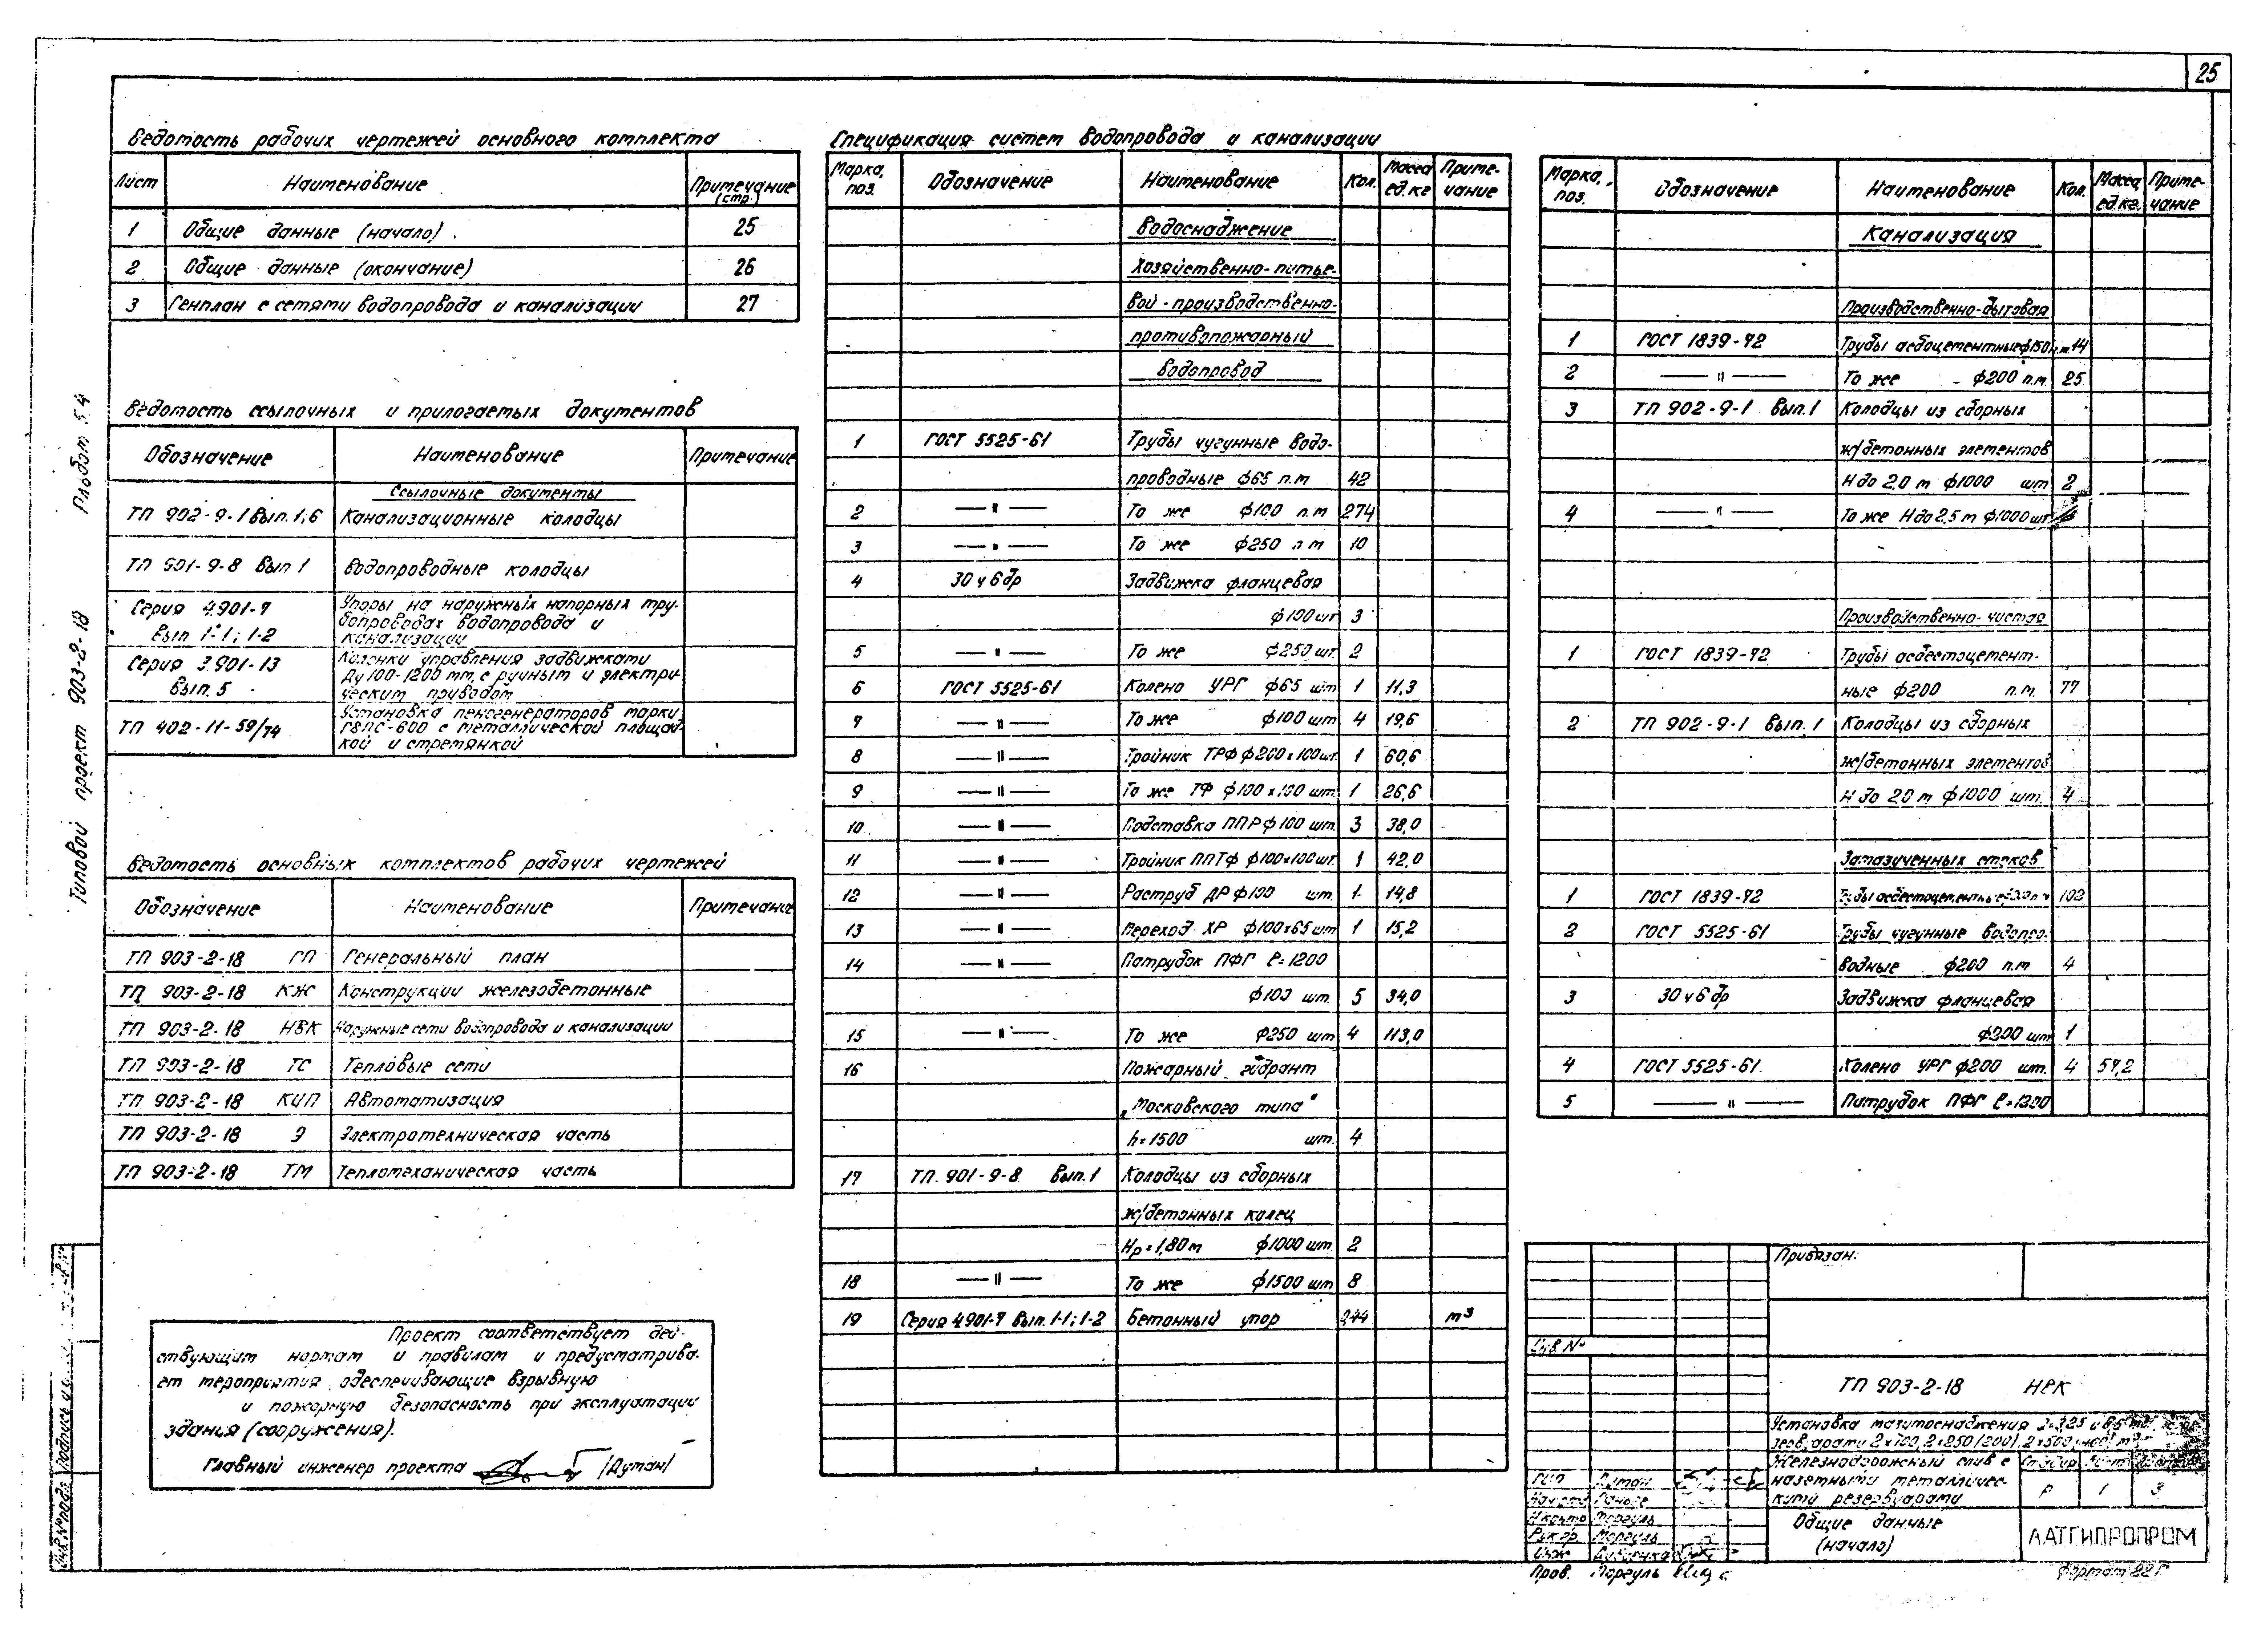 25
Альбом 5.4
Типовой проект 903-2-18
Ведомость рабочих чертежей основного комплекта
Лист Наименование Примечание (стр.)
1 Общие данные (начало). 25
2 Общие данные (окончание) 26
3 Генплан с сетями водопровода и канализации 27
Ведомость ссылочных и прилагаемых документов
Обозначение Наименование Примечание
Ссылочные документы
ТП 902-9-1 Вып. 1,6 Канализационные колодцы
ТП 901-9-8 Вып 1 Водопроводные колодцы
Серия 4.901-7 Вып 1-1; 1-2 Упоры на наружных напорных тру-
бопроводах водопровода и
канализации
Серия 3.901-13 Вып. 5 Колонки управления задвижками
Ду 100-1200 мм, с ручным и электри-
ческим приводом
ТП 402-11-59/74 Установка пеногенераторов марки
ГВПС-600 с металлической площад-
кой и стремянкой
Ведомость основных комплектов рабочих чертежей
Обозначение Наименование Примечание
ТП 903-2-18 ГП Генеральный план
ТП 903-2-18 КЖ Конструкции железобетонные
ТП 903-2-18 НВК Наружные сети водопровода и канализации
ТП 903-2-18 ТС Тепловые сети
ТП 903-2-18 КИП Автоматизация
ТП 903-2-18 Э Электротехническая часть
ТП 903-2-18 ТМ Тепломеханическая часть
Проект соответствует дей-
ствующим нормам и правилам и предусматрива-
ет мероприятия, обеспечивающие взрывную
и пожарную безопасность при эксплуатации
здания (сооружения).
Главный инженер проекта /Думан/
Спецификация систем водопровода и канализации
Марка, поз. Обозначение Наименование Кол. Масса ед.кг Приме-чание
Водоснабжение
Хозяйственно-питье-
вой-производственно-
противопожарный
водопровод
1 ГОСТ 5525-61 Трубы чугунные водо-
проводные ф65 п.м 42
2 —"— То же ф100 п.м 274
3 —"— То же ф250 п.м 10
4 30ч6бр Задвижка фланцевая
ф100 шт 3
5 —"— То же ф250 шт. 2
6 ГОСТ 5525-61 Колено УРГ ф65 шт 1 11,3
7 —"— То же ф100 шт 4 19,6
8 —"— Тройник ТРФ ф200х100 шт. 1 60,6
9 —"— То же ТФ ф100х100 шт. 1 26,6
10 —"— Подставка ППР ф100 шт. 3 38,0
11 —"— Тройник ППТФ ф100х100 шт. 1 42,0
12 —"— Раструб ДР ф100 шт. 1 14,8
13 —"— Переход ХР ф100х65 шт 1 15,2
14 —"— Патрубок ПФГ ℓ=1200
ф100 шт. 5 34,0
15 —"— То же ф250 шт 4 113,0
16 Пожарный гидрант
„Московского типа"
h=1500 шт. 4
17 ТП. 901-9-8 Вып. 1 Колодцы из сборных
ж/бетонных колец
Нр=1,80м ф1000 шт. 2
18 —"— То же ф1500 шт 8
19 Серия 4.901-7 Вып. 1-1; 1-2 Бетонный упор м³
Марка, поз. Обозначение Наименование Кол. Масса ед.кг. Приме-чание
Канализация
Производственно-бытовая
1 ГОСТ 1839-72 Трубы асбоцементные ф150 п.м. 14
2 —"— То же ф200 п.м. 25
3 ТП 902-9-1 Вып. 1 Колодцы из сборных
ж/бетонных элементов
Н до 2,0 м ф1000 шт 2
4 —"— То же Н до 2,5 м ф1000 шт.
Производственно-чистая
1 ГОСТ 1839-72 Трубы асбестоцемент-
ные ф200 п.м. 77
2 ТП 902-9-1 Вып. 1 Колодцы из сборных
ж/бетонных элементов
Н до 2.0 м ф1000 шт. 4
Замазученных стоков
1 ГОСТ 1839-72 Трубы асбестоцементные 102
2 ГОСТ 5525-61 Трубы чугунные водопро-
водные ф200 п.м 4
3 30ч6бр Задвижка фланцевая
ф200 шт 1
4 ГОСТ 5525-61. Колено УРГ ф200 шт. 4 57,2
5 —"— Патрубок ПФГ ℓ=1200
Привязан:
Инв №
ТП 903-2-18 НВК
Установка мазутоснабжения
Железнодорожный слив с
наземными металличес-
кими резервуарами
Стадия Лист
Р 1 3
Общие данные
(начало)
ЛАТГИПРОПРОМ
ГИП Думан
Н контр Моргуль
Рук гр. Моргуль
Инж
Пров. Моргуль
Формат 22Г
Инв № подл. Подпись и